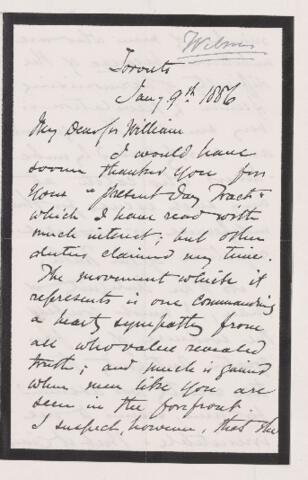 Wilson
Toronto
Jany 9th 1886
My Dear Sir William
I would have
sooner thanked you for
your "present Day Tract"
which I have read with
much interest; but other
duties claimed my time.
The movement which it
represents is one commanding
a hearty sympathy from
all who value revealed
truth; and much is gained
when men like you are
seen in the forefront.
I suspect, however, that the